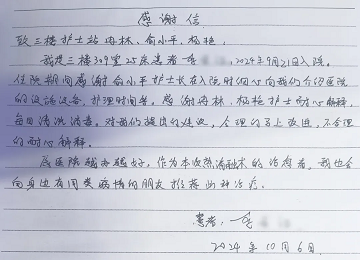 感谢信
致三楼护士站 冉林、俞小平、杨艳
我是三楼309室25床患者 李 2024年9月21日入院。
住院期间感谢俞小平护士长在入院时细心向我们介绍医院
的设施设备、护理时间等,感谢冉林、杨艳护士耐心解释,
每日清洗消毒。对我们提出的建议,合理的马上改进,不合理
的耐心解释。
愿医院越办越好,作为本次热消融术的治疗者,我也会
向身边有同类病情的朋友推荐此种治疗。
患者:李
2024年10月6日